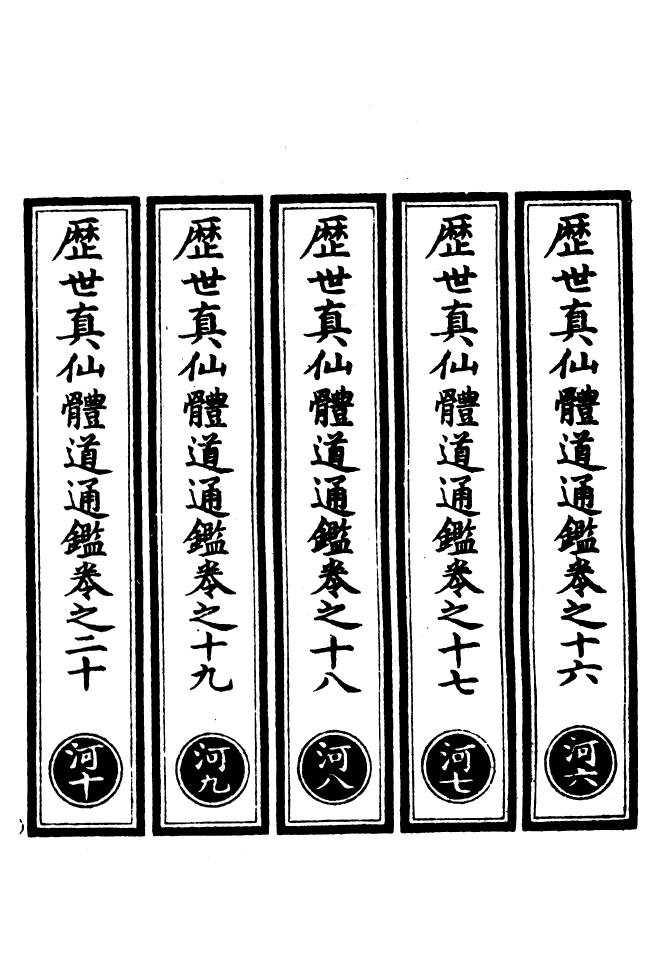 歷世真仙體道通鑑卷之十六
河六
歷世真仙體道通鑑卷之十七
河七
歷世真仙體道通鑑卷之十八
河八
歷世真仙體道通鑑卷之十九
河九
歷世真仙體道通鑑卷之二十
河十